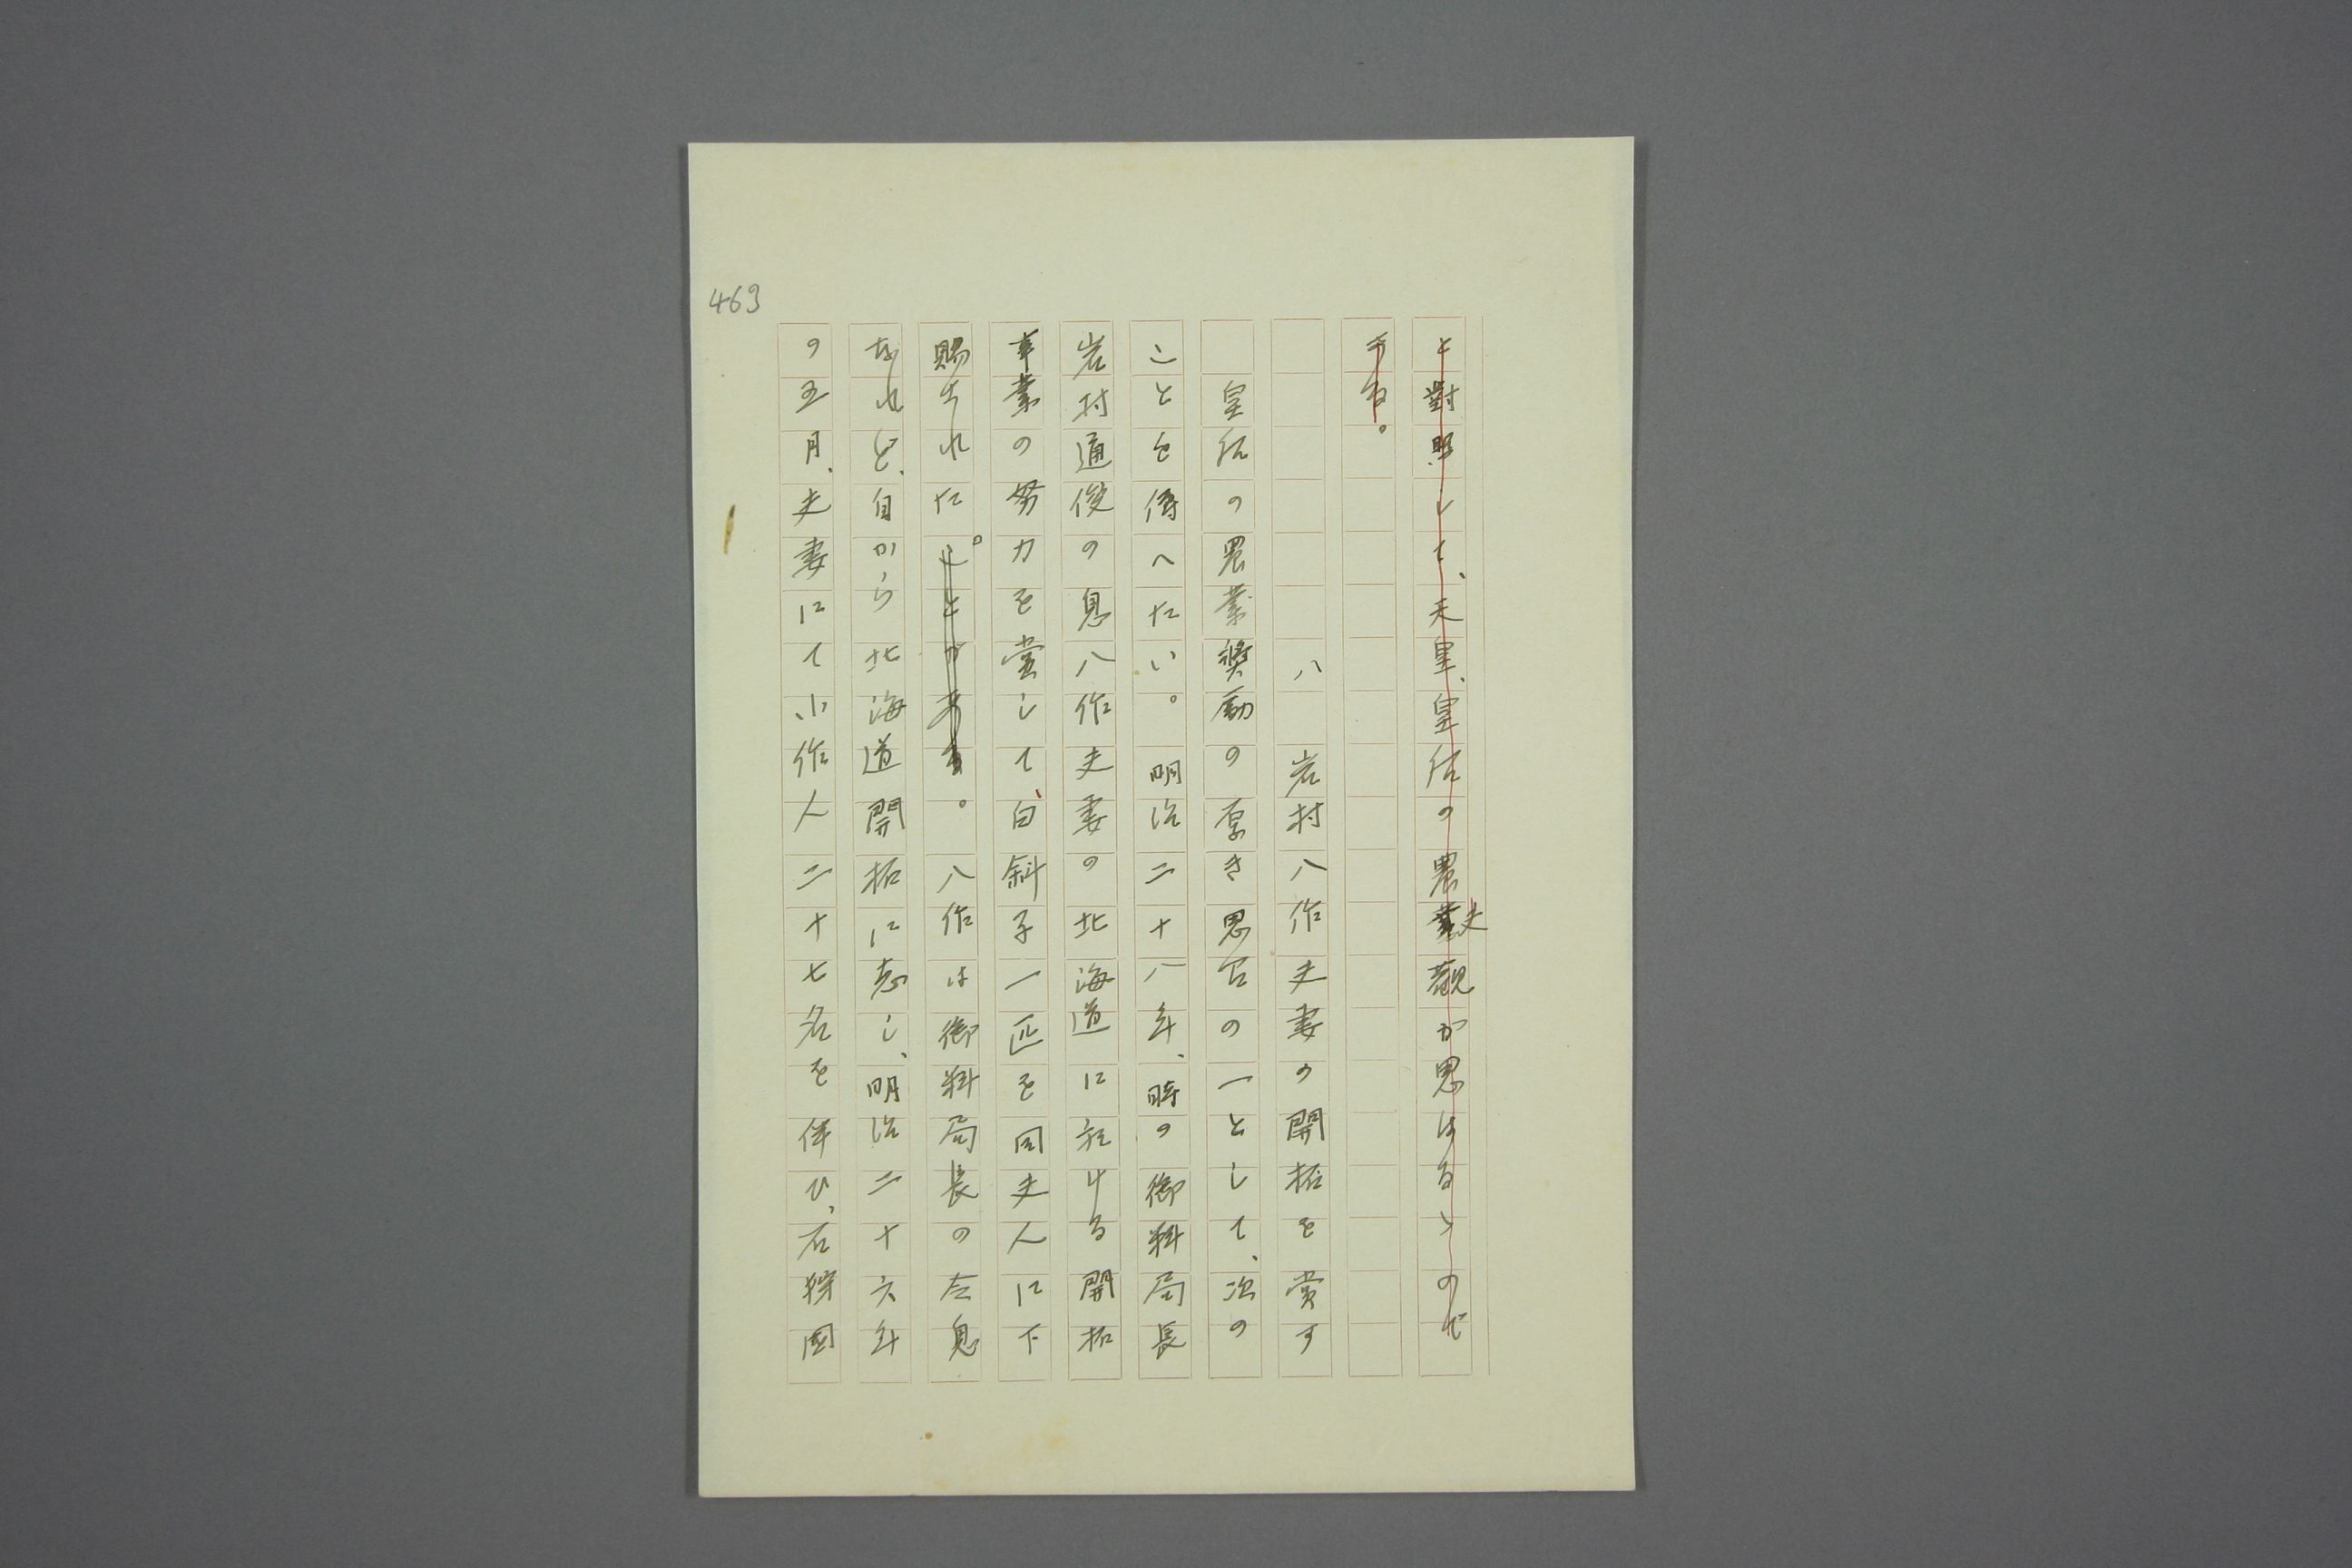 463
と對照して、天皇、皇后の農夫觀が思はるゝので
ある。
八　岩村八作夫妻の開拓を賞す
皇后の農業奬勵の厚き思召の一として、次の
ことを傳へたい。明治二十八年、時の御料局長
岩村通俊の息八作夫妻の北海道に於ける開拓
事業の努力を賞して、白斜子一匹を同夫人に下
賜された。ことがある。八作は御料局長の令息
なれど、自から北海道開拓に志し、明治二十六年
の五月、夫妻にて小作人二十七名を伴ひ、石狩國